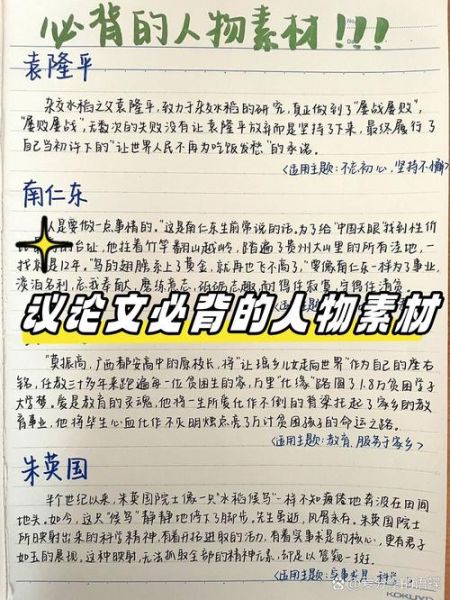 必背的人物素材!!!
袁隆平
杂交水稻之父袁隆平,致力于杂交水稻的研究,真正做到了"屡战屡败",
"屡败屡战",无数次的失败没有让袁隆平放弃而是坚持了下来,最终履行了
自己当初许下的"让世界人民不再为吃饭发愁"的承诺。
<适用主题:不忘初心,坚持不懈>
南仁东
人是要做一点事情的。"这是南仁东生前常说的话,为了给"中国天眼"找到性价
台址,他拄着竹竿翻山越岭,踏遍了贵州大山里的所有洼地,一
找就是12年。"鸟的翅膀系上了黄金,就再也飞不高了,"要像南仁东一样为了事业,
淡泊名利,忘我奉献
议论文必背的人物素材
"莫振高,广西都安高中的原校长,将"让瑶乡儿女走向世界"作为自己的座右
铭,任教三十多年来跑遍每一位贫困生的家,万里"化缘"路圆了1.8万贫困学子
大学梦。爱是教育的灵魂,他将一生所爱化作不倒的脊梁托起了家乡的教
育事业,他将毕生心血化作不灭明烛点亮了万计贫困孩子的命运之路。
<适用主题:教育,服务于家乡>
朱英国
半个世纪以来,朱英国院士像一只"水稻候鸟"一样不知疲倦地奔波在田间
地头。如今,这只"候鸟"静静地停下了脚步。先生虽逝,风骨永存。朱英国院士
所映射出来的科学精神,有着开拓进取的活力,有着实事求是的核心,更有君子
如玉的展现。这种映射,无法抓取全部的精神元素,却足以管窥一斑。
<适用主题:实事求是,科学>
KOKUYO